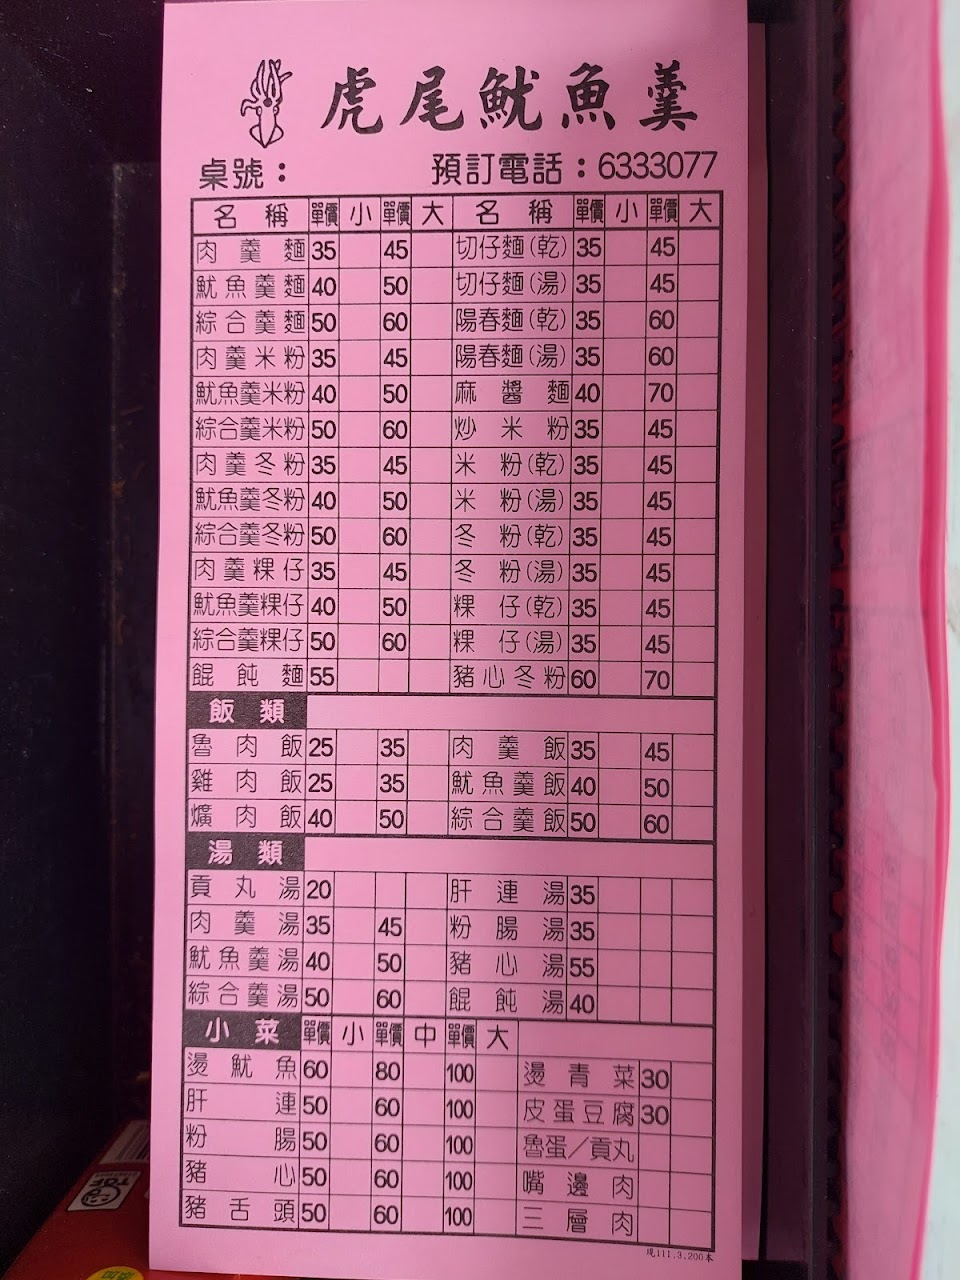 虎尾魷魚羹
桌號： 預訂電話：6333077
名稱 單價 小 單價 大 名稱 單價 小 單價 大
肉羹麵 35 45 切仔麵(乾) 35 45
魷魚羹麵 40 50 切仔麵(湯) 35 45
綜合羹麵 50 60 陽春麵(乾) 35 60
肉羹米粉 35 45 陽春麵(湯) 35 60
魷魚羹米粉 40 50 麻醬麵 40 70
綜合羹米粉 50 60 炒米粉 35 45
肉羹冬粉 35 45 米粉(乾) 35 45
魷魚羹冬粉 40 50 米粉(湯) 35 45
綜合羹冬粉 50 60 冬粉(乾) 35 45
肉羹粿仔 35 45 冬粉(湯) 35 45
魷魚羹粿仔 40 50 粿仔(乾) 35 45
綜合羹粿仔 50 60 粿仔(湯) 35 45
餛飩麵 55 豬心冬粉 60 70
飯類
魯肉飯 25 35 肉羹飯 35 45
雞肉飯 25 35 魷魚羹飯 40 50
爌肉飯 40 50 綜合羹飯 50 60
湯類
貢丸湯 20 肝連湯 35
肉羹湯 35 45 粉腸湯 35
魷魚羹湯 40 50 豬心湯 55
綜合羹湯 50 60 餛飩湯 40
小菜 單價 小 單價 中 單價 大
燙魷魚 60 80 100 燙青菜 30
肝連 50 60 100 皮蛋豆腐 30
粉腸 50 60 100 魯蛋／貢丸
豬心 50 60 100 嘴邊肉
豬舌頭 50 60 100 三層肉
111.3.200本
TQF